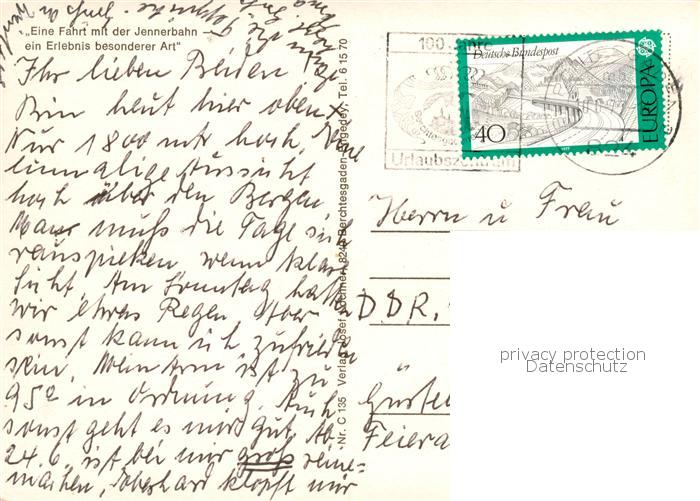 „Eine Fahrt mit der Jennerbahn —
ein Erlebnis besonderer Art"
Ihr lieben Beiden
Bin heut hier oben
Nur 1800 mtr hoch.
einmalige Aussicht
hoch über den Bergen
Man muß die Tage sich
rauspicken wenn klare
Sicht. Am Sonntag hatten
wir etwas Regen. Aber
sonst kann ich zufrieden
sein. Mein Arm ist zu
95% in Ordnung. Auch
sonst geht es mir gut. Ab
24.6. ist bei mir groß reine-
machen, Eberhard klopft mir
Nr. C 135 Verlag Josef 8240 Berchtesgaden-Engedey, Tel. 6 15 70
100 Jahre
Urlaubszentrum
Deutsche Bundespost
40
EUROPA
1977
Herrn u Frau
DDR.
Feiera
privacy protection
Datenschutz